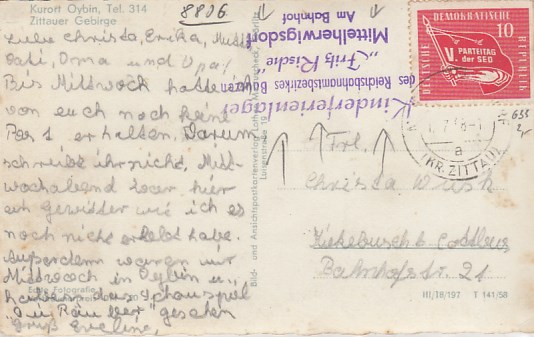 Kurort Oybin, Tel. 314
Zittauer Gebirge
8806
Liebe Christa, Erika, Mutti
Vati, Oma und Opa!
Bis Mittwoch hatte ich
von euch noch keine
Post erhalten. Darum
schreibt ihr nicht, Mitt-
wochabend war hier
ein Gewitter wie ich es
noch nicht erlebt habe.
Außerdem waren wir
Mittwoch in Oybin u.
haben das Schauspiel
"Die Räuber" gesehen
Gruß Eveline,
Echte Fotografie
Bild- und Ansichtspostkartenverlag
Luisenstraße 19
Kinderferienlager
des Reichsbahnamtsbezirkes Bautzen
„Fritz Rische"
Mittelherwigsdorf
Am Bahnhof
DEUTSCHE DEMOKRATISCHE REPUBLIK
10
V. PARTEITAG
der SED
a
(KR. ZITTAU)
Frl.
Christa
Kiekebusch b Cottbus
Bahnhofstr. 21
III/18/197 T 141/58